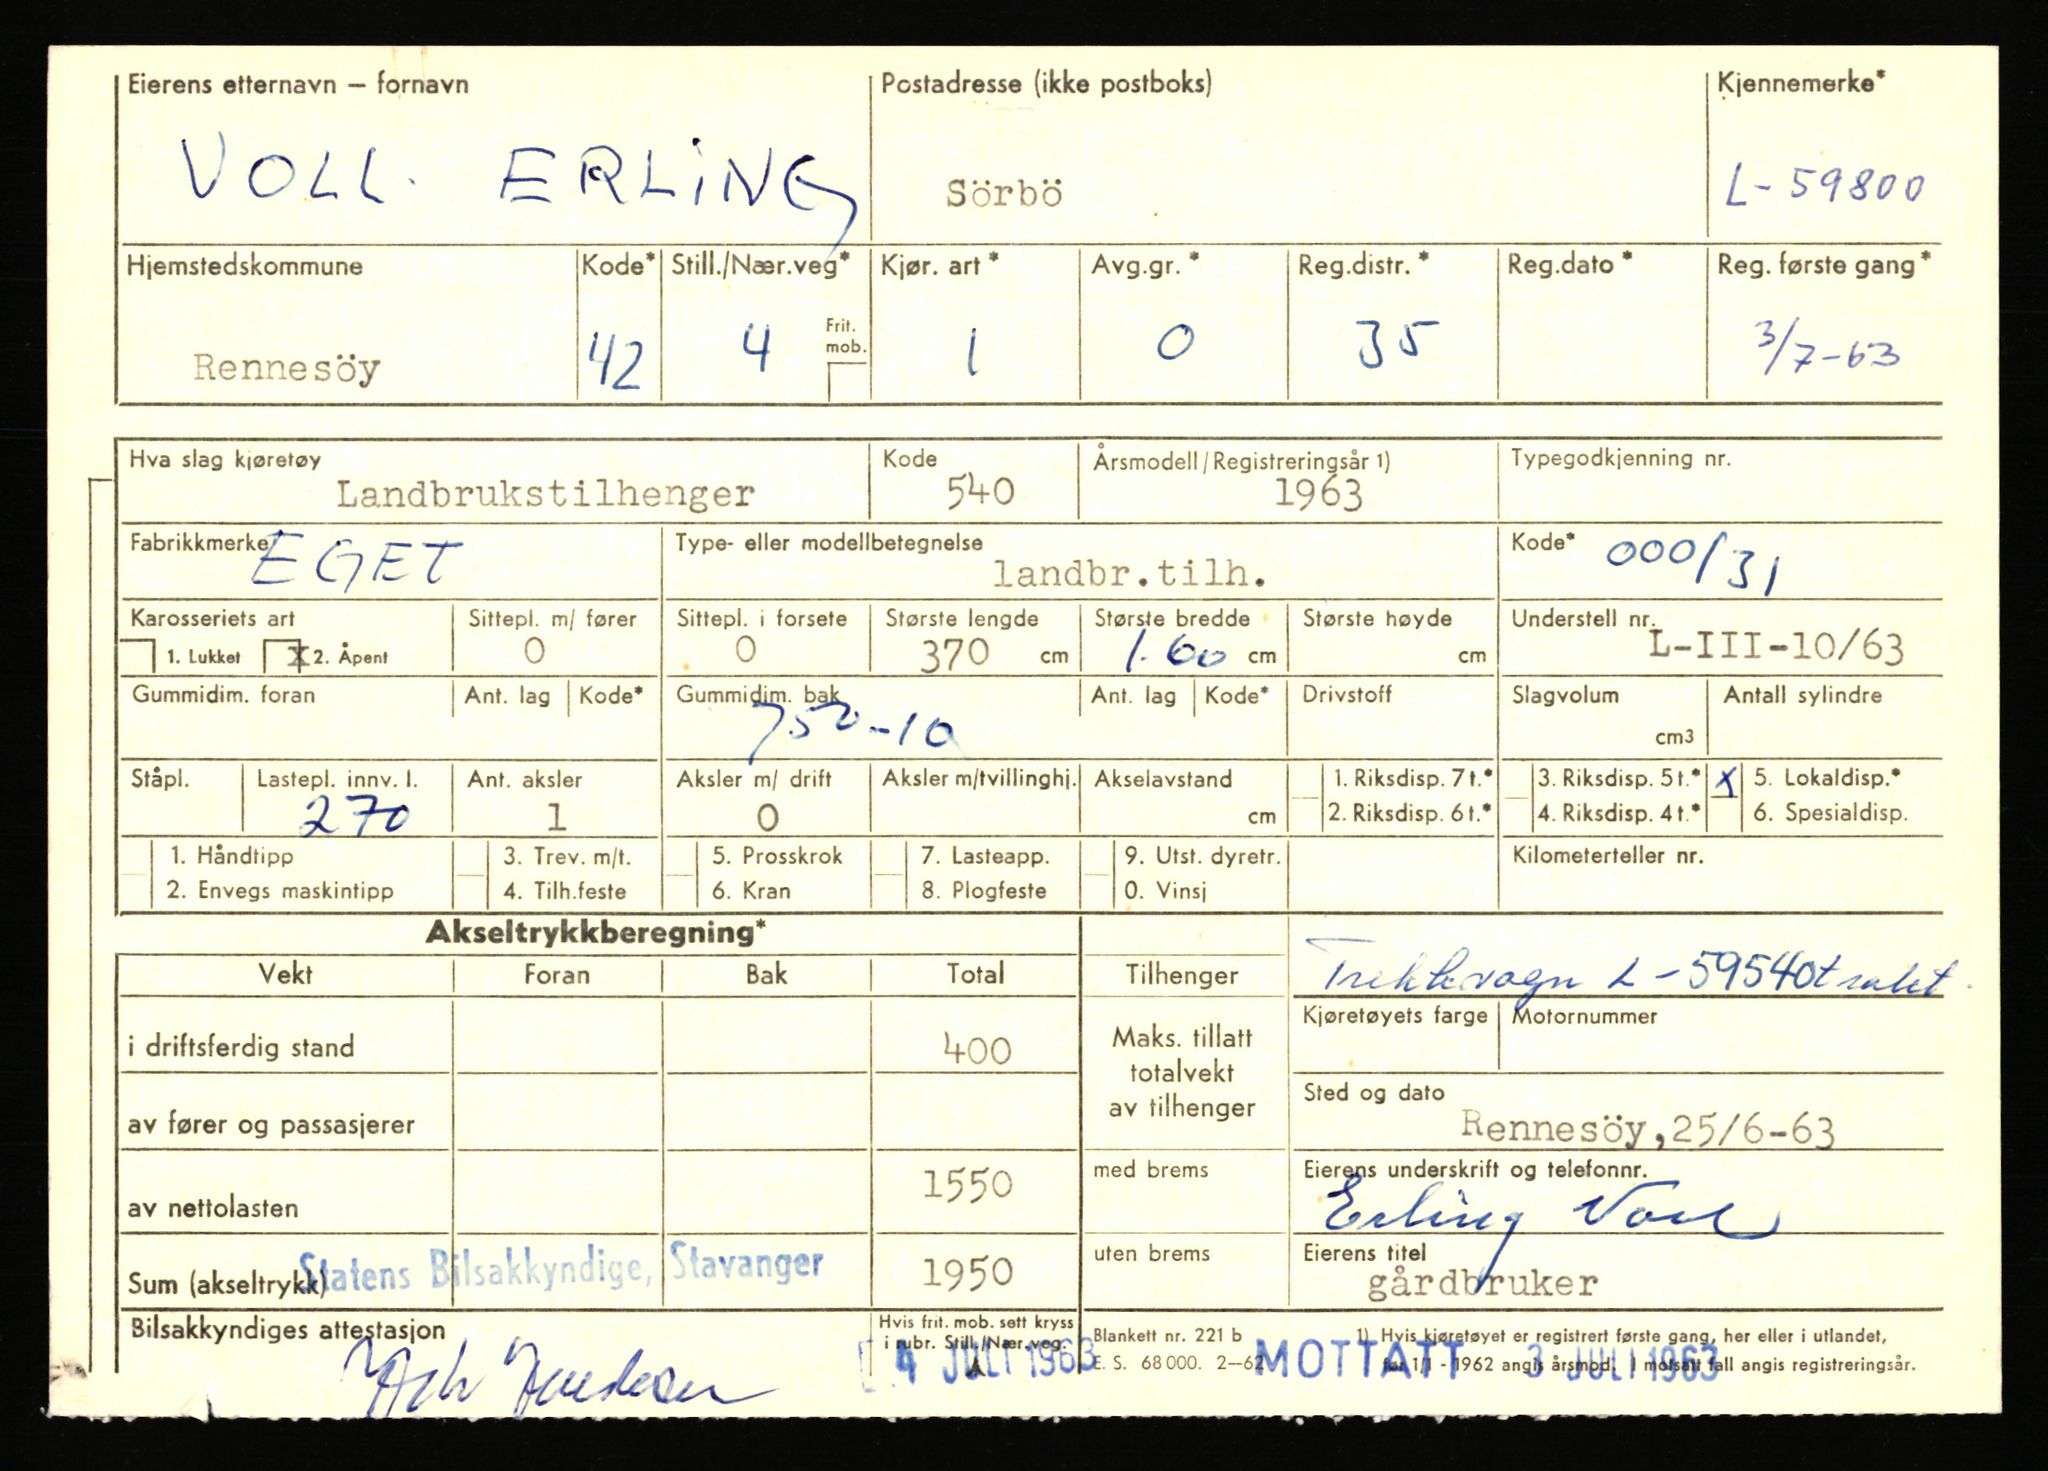 Eierens etternavn – fornavn Postadresse (ikke postboks) Kjennemerke*
VOLL ERLING Sörbö L-59800
Hjemstedskommune Kode* Still./Nær.veg* Kjør. art* Avg.gr.* Reg.distr.* Reg.dato* Reg. første gang*
Rennesöy 42 4 Frit. mob. 1 0 35 3/7-63
Hva slag kjøretøy Kode Årsmodell/Registreringsår 1) Typegodkjenning nr.
Landbrukstilhenger 540 1963
Fabrikkmerke EGET Type- eller modellbetegnelse landbr.tilh. Kode* 000/31
Karosseriets art Sittepl. m/ fører Sittepl. i forsete Største lengde Største bredde Største høyde Understell nr.
1. Lukket X 2. Åpent 0 0 370 cm 1.60 cm cm L-III-10/63
Gummidim. foran Ant. lag Kode* Gummidim. bak Ant. lag Kode* Drivstoff Slagvolum Antall sylindre
750-10 cm3
Ståpl. Lastepl. innv. l. Ant. aksler Aksler m/ drift Aksler m/tvillinghj. Akselavstand 1. Riksdisp. 7 t.* 3. Riksdisp. 5 t.* X 5. Lokaldisp.*
270 1 0 cm 2. Riksdisp. 6 t.* 4. Riksdisp. 4 t.* 6. Spesialdisp.
1. Håndtipp 3. Trev. m/t. 5. Prosskrok 7. Lasteapp. 9. Utst. dyretr. Kilometerteller nr.
2. Envegs maskintipp 4. Tilh.feste 6. Kran 8. Plogfeste 0. Vinsj
Akseltrykkberegning*
Vekt Foran Bak Total Tilhenger Trekkvogn L-59540
Kjøretøyets farge Motornummer
i driftsferdig stand 400 Maks. tillatt totalvekt av tilhenger
Sted og dato
av fører og passasjerer Rennesöy,25/6-63
av nettolasten 1550 med brems Eierens underskrift og telefonnr.
Erling Voll
Sum (akseltrykk) 1950 uten brems Eierens titel
Statens Bilsakkyndige, Stavanger gårdbruker
Bilsakkyndiges attestasjon Hvis frit. mob. sett kryss i rubr. Still./Nær.veg. Blankett nr. 221 b 1) Hvis kjøretøyet er registrert første gang, her eller i utlandet,
4 JULI 1963 E. S. 68 000. 2–62 før 1/1 - 1962 angis årsmod. I motsatt fall angis registreringsår.
MOTTATT 3 JULI 1963